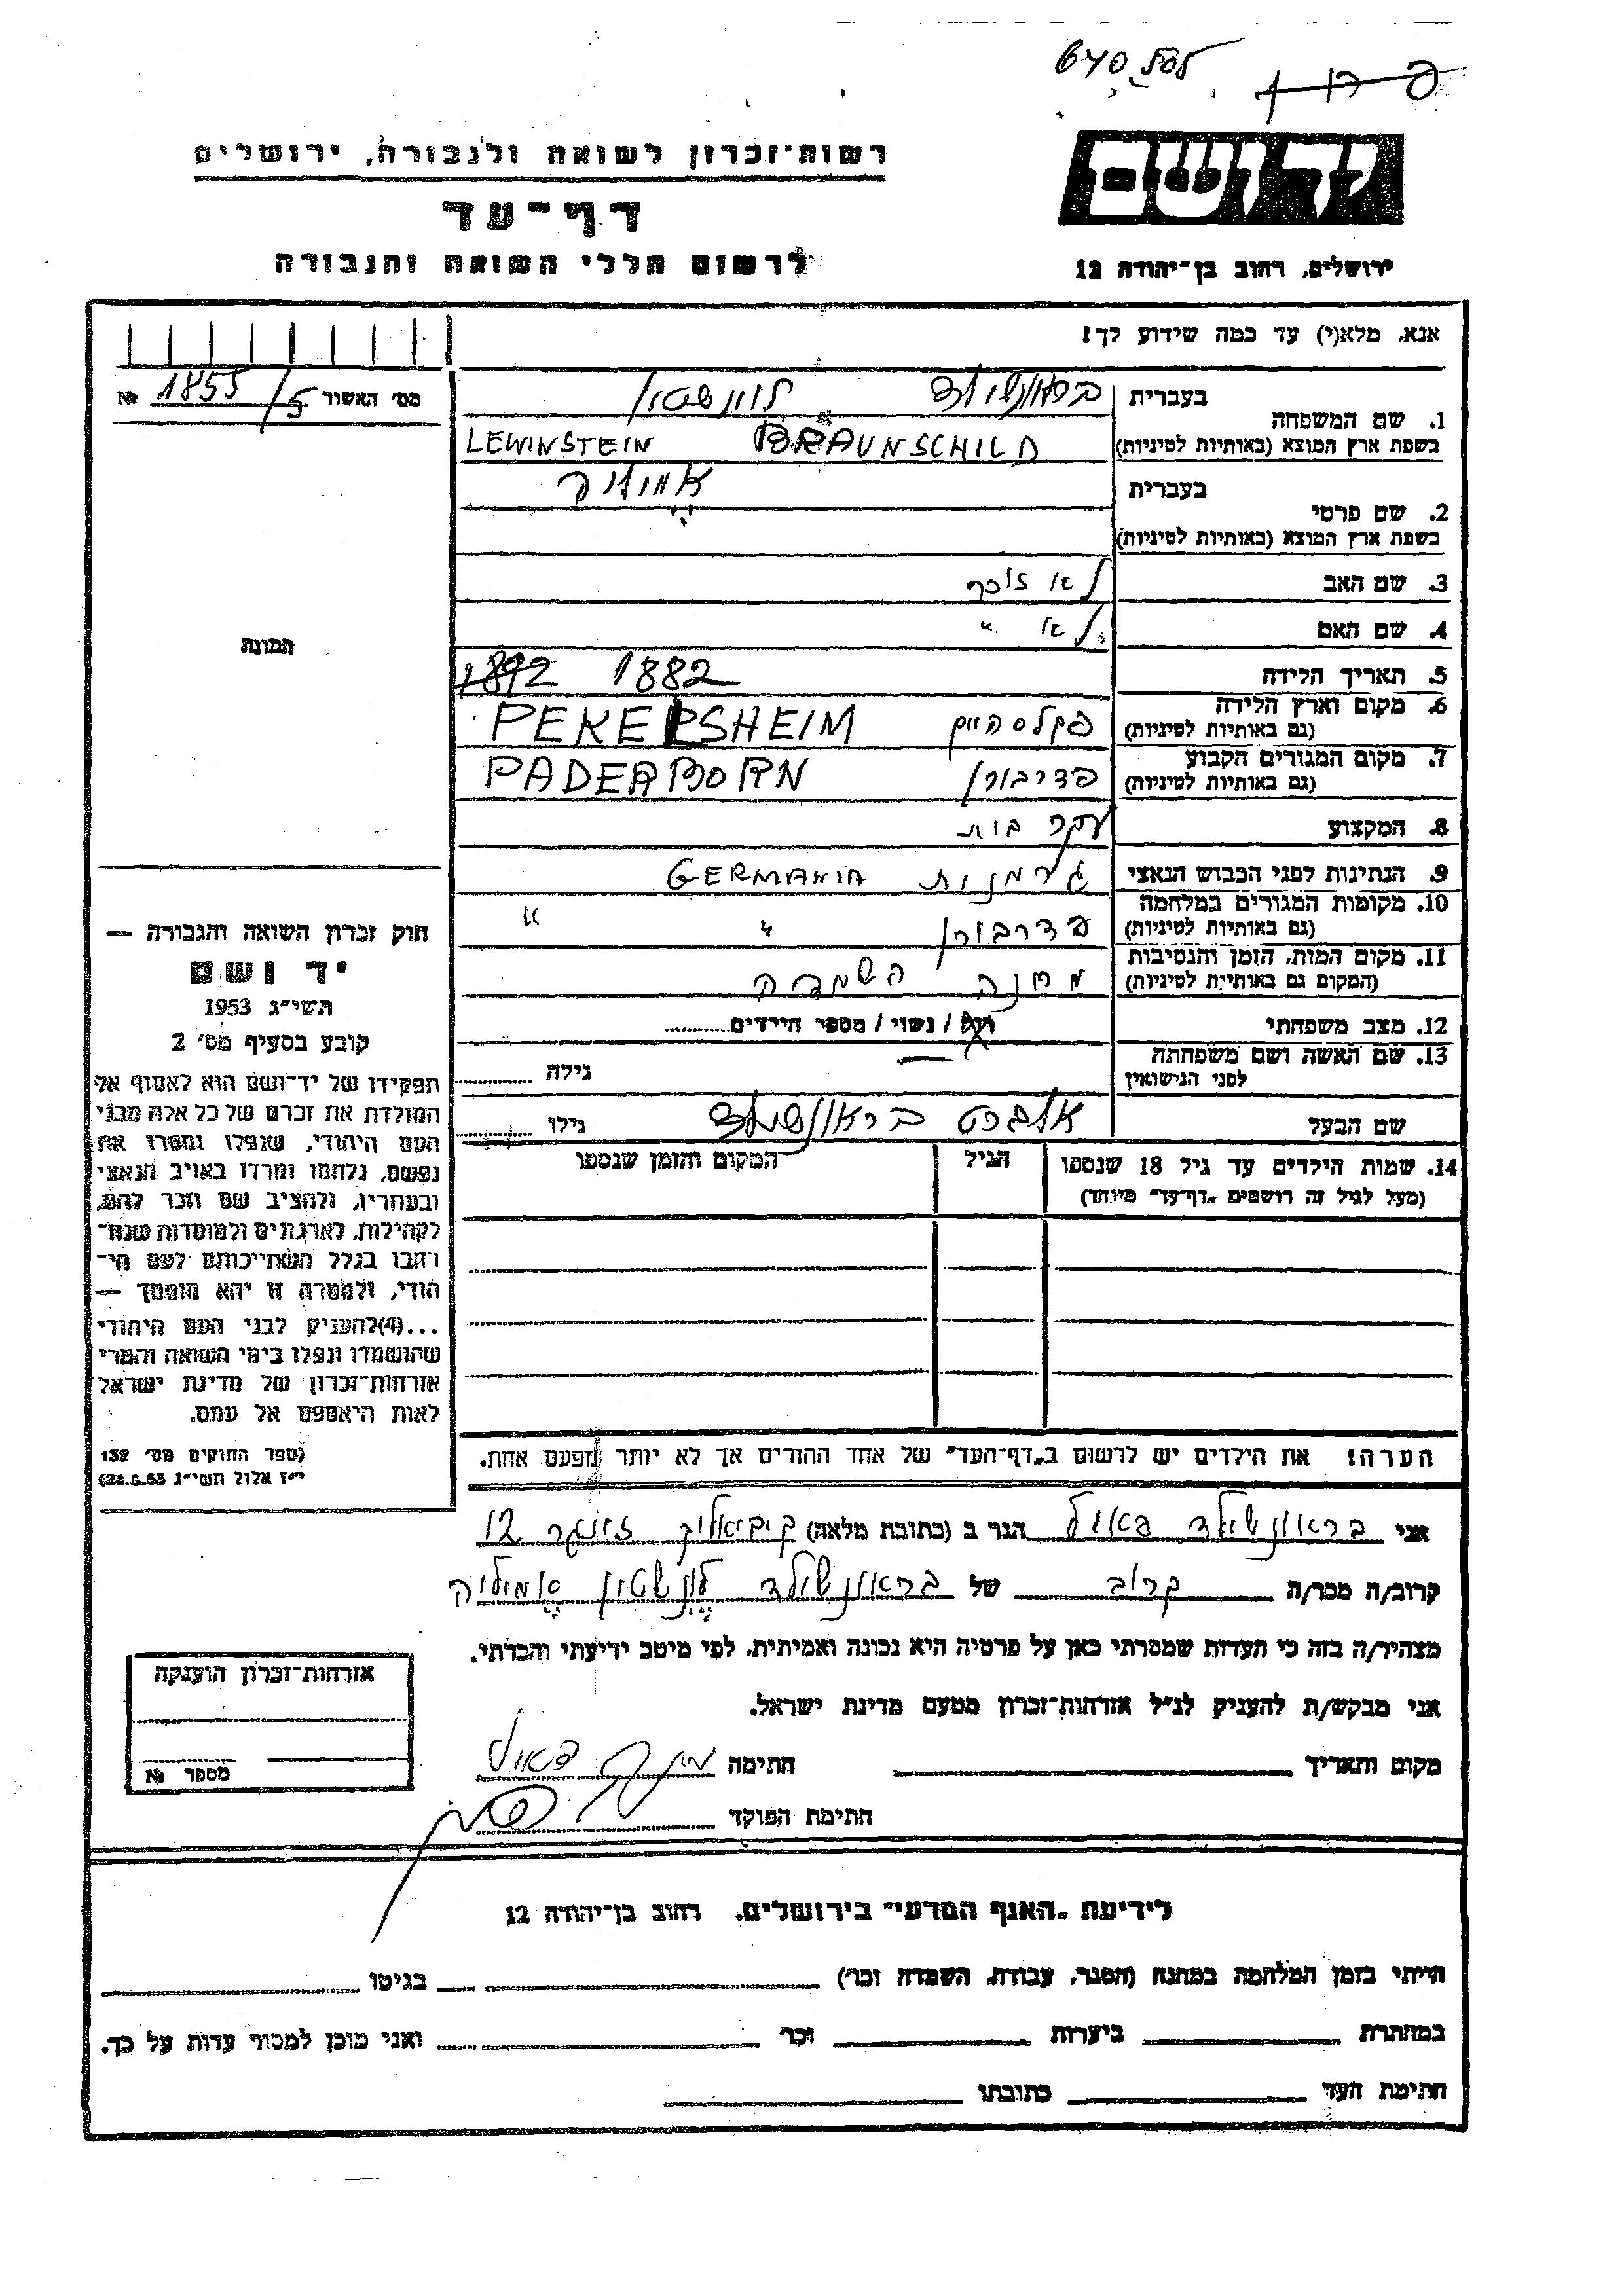 670
יד ושם
ירושלים, רחוב בן־יהודה 12
רשות־זכרון לשואה ולגבורה, ירושלים
דף־עד
לרשום חללי השואה והגבורה
אנא, מלא(י) עד כמה שידוע לך!
מס׳ האשור 1855/5 №
תמונה
1. שם המשפחה
בעברית בראונשילד לוונשטיין
בשפת ארץ המוצא (באותיות לטיניות) BRAUNSCHILD LEWINSTEIN
2. שם פרטי
בעברית אמיליה
בשפת ארץ המוצא (באותיות לטיניות)
3. שם האב לא זוכר
4. שם האם לא "
5. תאריך הלידה 1882 1892
6. מקום וארץ הלידה (גם באותיות לטיניות) פקלסהיים PEKELSHEIM
7. מקום המגורים הקבוע (גם באותיות לטיניות) פדרבורן PADERBORN
8. המקצוע עקרת בית
9. הנתינות לפני הכבוש הנאצי גרמנית GERMANIA
10. מקומות המגורים במלחמה (גם באותיות לטיניות) פדרבורן " "
11. מקום המות, הזמן והנסיבות (המקום גם באותיות לטיניות) מחנה השמדה
12. מצב משפחתי רווק / נשוי / מספר הילדים
13. שם האשה ושם משפחתה לפני הנישואין — גילה
שם הבעל אלברט בראונשילד גילו
14. שמות הילדים עד גיל 18 שנספו
(מעל לגיל זה רושמים „דף־עד" מיוחד)
הגיל
המקום והזמן שנספו
הערה! את הילדים יש לרשום ב„דף־העד" של אחד ההורים אך לא יותר מפעם אחת.
חוק זכרון השואה והגבורה —
יד ושם
תשי״ג 1953
קובע בסעיף מס׳ 2
תפקידו של יד־ושם הוא לאסוף אל
המולדת את זכרם של כל אלה מבני
העם היהודי, שנפלו ומסרו את
נפשם, נלחמו ומרדו באויב הנאצי
ובעוזריו, ולהציב שם וזכר להם,
לקהילות, לארגונים ולמוסדות שנח־
רבו בגלל השתייכותם לעם הי־
הודי, ולמטרה זו יהא מוסמך —
...(4) להעניק לבני העם היהודי
שהושמדו ונפלו בימי השואה והמרי
אזרחות־זכרון של מדינת ישראל
לאות היאספם אל עמם.
(ספר החוקים מס׳ 132
י״ז אלול תשי״ג 28.8.53)
אני בראונשילד פאול הגר ב (כתובת מלאה) קיביאליק זינגר 12
קרוב/ה מכר/ה קרוב של בראונשילד לונשטין אמיליה
מצהיר/ה בזה כי העדות שמסרתי כאן על פרטיה היא נכונה ואמיתית, לפי מיטב ידיעתי והכרתי.
אני מבקש/ת להעניק לנ״ל אזרחות־זכרון מטעם מדינת ישראל.
מקום ותאריך חתימה פאול
חתימת הפוקד
אזרחות־זכרון הוענקה
מספר №
לידיעת „האגף המדעי" בירושלים, רחוב בן־יהודה 12
הייתי בזמן המלחמה במחנה (הסגר, עבודה, השמדה וכו׳) בגיטו
במחתרת ביערות וכו׳ ואני מוכן למסור עדות על כך.
חתימת העד כתובתו